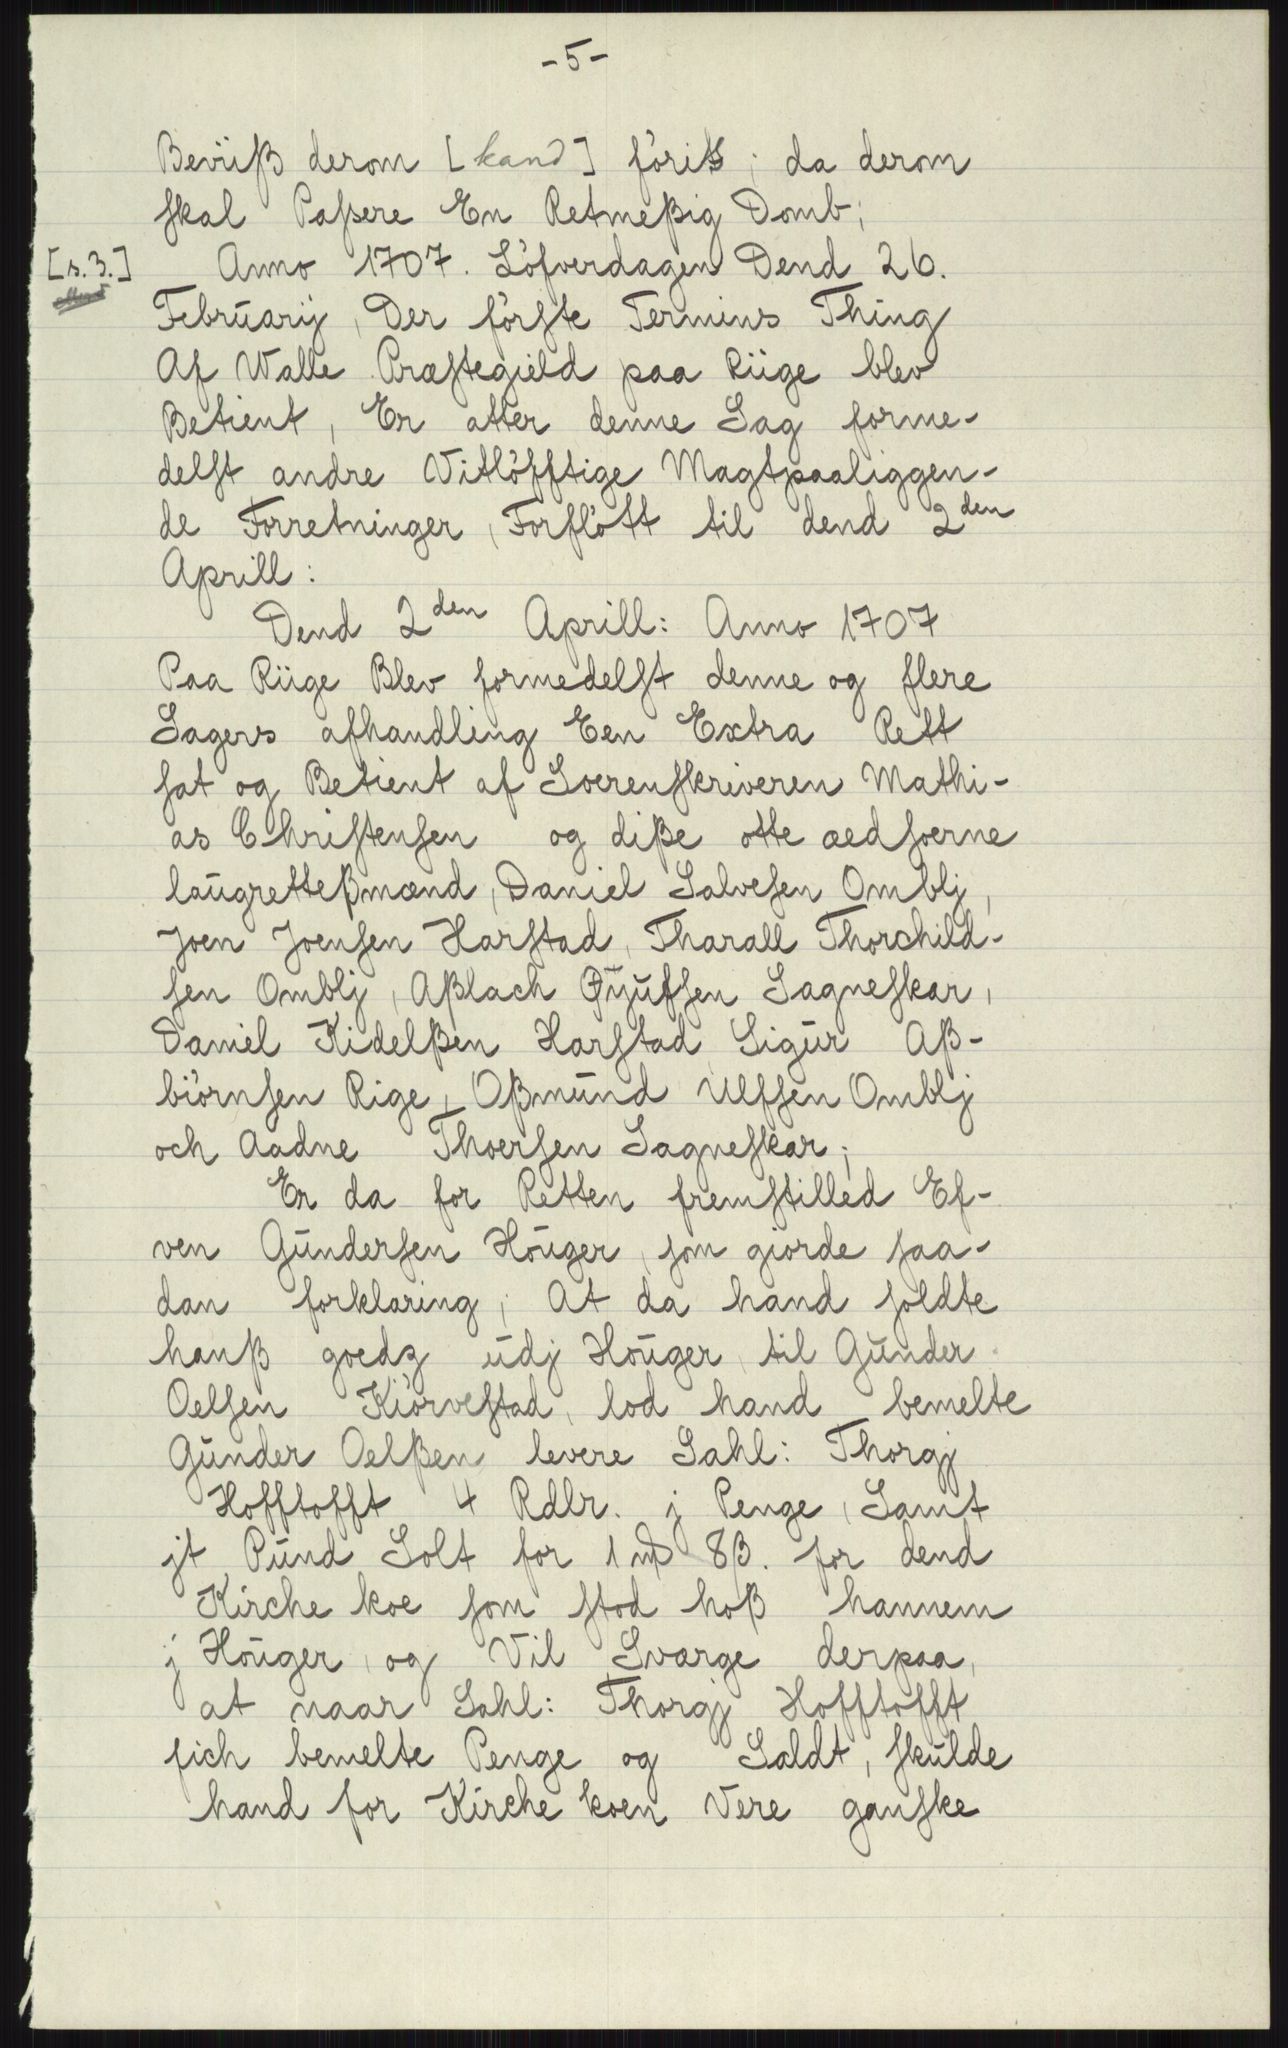 -5-
Beviiß derom [kand] föris; da derom
skal Paßere En Retmeßig Domb;
[s. 3.] Anno 1707. Löfverdagen Dend 26.
Februarij, Der förste Termins Thing
Af Walle Præstegield paa Riige blev
Betient, Er atter denne Sag forme-
delst andre Vitlöfftige Magtpaaliggen-
de Forretninger, Forflött til dend 2den
Aprill:
Dend 2den Aprill: Anno 1707
Paa Riige Blev formedelst denne og flere
Sagers afhandling Een Extra Rett
sat og Betient af Soerenskriveren Mathi-
as Christensen og diße otte aedsoerne
laugretteßmænd, Daniel Salvesen Omblj,
Joen Joensen Harstad, Tharall Thorchild-
sen Omblj, Aßlach Gyufsen Sagneskar,
Daniel Kidelßen Harstad Sigur Aß-
biörnsen Rige, Oßmund Ulfsen Omblj
och Aadne Thoersen Sagneskar;
Er da for Retten fremstilled Ef-
ven Gundersen Houger, som giorde saa-
dan forklaring; At da hand soldte
hanß goedz udj Houger, til Gunder
Oelsen Kiörvestad, lod hand bemelte
Gunder Oelßen levere Sahl: Thorgj
Hofftofft 4 Rdlr. j Penge, Samt
jt Pund Solt for 1 mþ 8ß. for dend
Kirche koe som stod hoß hannem
j Houger, og Vil Sværge derpaa,
at naar Sahl: Thorgj Hofftofft
fich bemelte Penge og Saldt, skulde
hand for Kirche koen Vere ganske